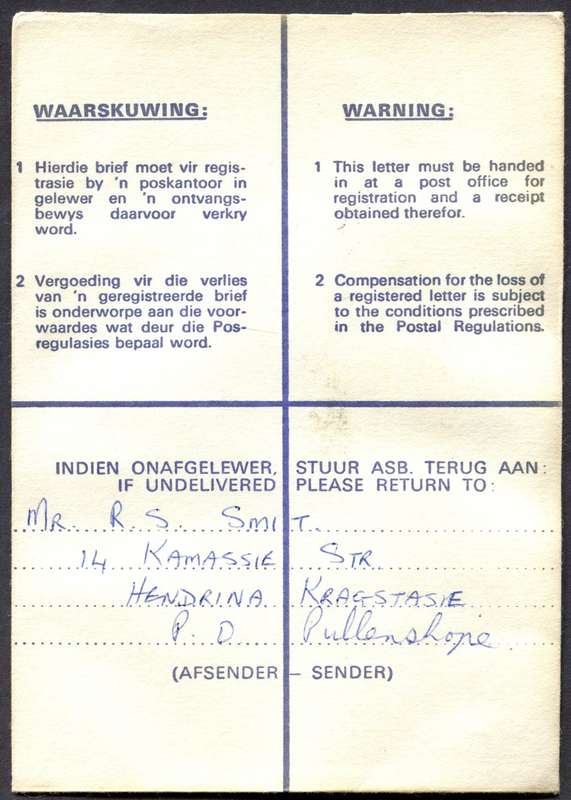 WAARSKUWING:
1 Hierdie brief moet vir regis-
trasie by 'n poskantoor in
gelewer en 'n ontvangs-
bewys daarvoor verkry
word.
2 Vergoeding vir die verlies
van 'n geregistreerde brief
is onderworpe aan die voor-
waardes wat deur die Pos-
regulasies bepaal word.
WARNING:
1 This letter must be handed
in at a post office for
registration and a receipt
obtained therefor.
2 Compensation for the loss of
a registered letter is subject
to the conditions prescribed
in the Postal Regulations.
INDIEN ONAFGELEWER, STUUR ASB. TERUG AAN:
IF UNDELIVERED PLEASE RETURN TO:
MR. R. S. SMIT.
14 KAMASSIE STR.
HENDRINA KRAGSTASIE
P. O Pullenshope
(AFSENDER – SENDER)